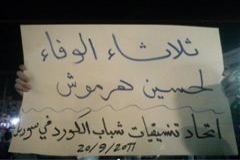 ثلاثاء الوفاء
لحسين هرموش
اتحاد تنسيقيات شباب الكورد في سوريا
20/9/2011